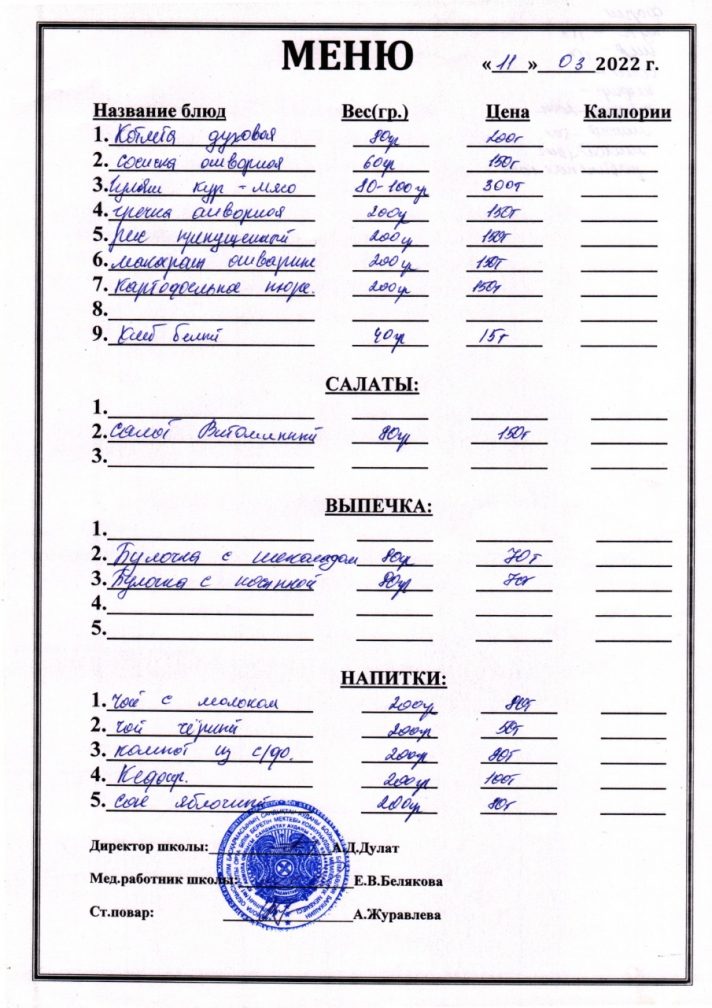 МЕНЮ «11» 03 2022 г.
Название блюд Вес(гр.) Цена Каллории
1. Котлета духовая 80гр 200т
2. сосиска отварная 60гр 150т
3. гуляш кур - мясо 80-100гр 300т
4. гречка отворная 200гр 150т
5. рис припущенный 200гр 150т
6. макарат отварние 200гр 150т
7. картофельное пюре. 200гр 150т
8.
9. Хлеб белый 40гр 15т
САЛАТЫ:
1.
2. салат Витаминный 80гр 150т
3.
ВЫПЕЧКА:
1.
2. Булочка с шоколадом 80гр 70т
3. Булочка с посыпкой 80гр 70т
4.
5.
НАПИТКИ:
1. чай с молоком 200гр 80т
2. чай чёрный 200гр 50т
3. компот из с/фр. 200гр 80т
4. Кефир. 200гр 100т
5. сок яблочный 200гр 80т
Директор школы: А.Д.Дулат
Мед.работник школы: Е.В.Белякова
Ст.повар: А.Журавлева